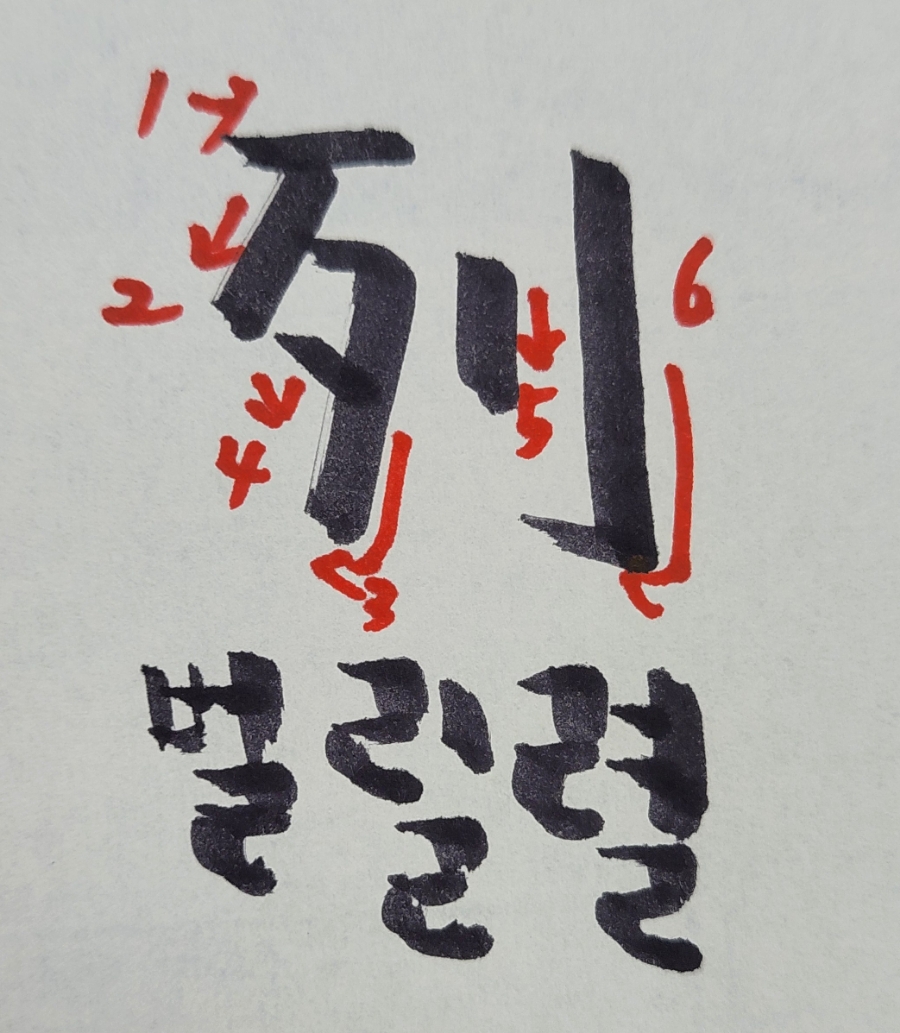 列
1
2
3
4
5
6
벌릴 렬